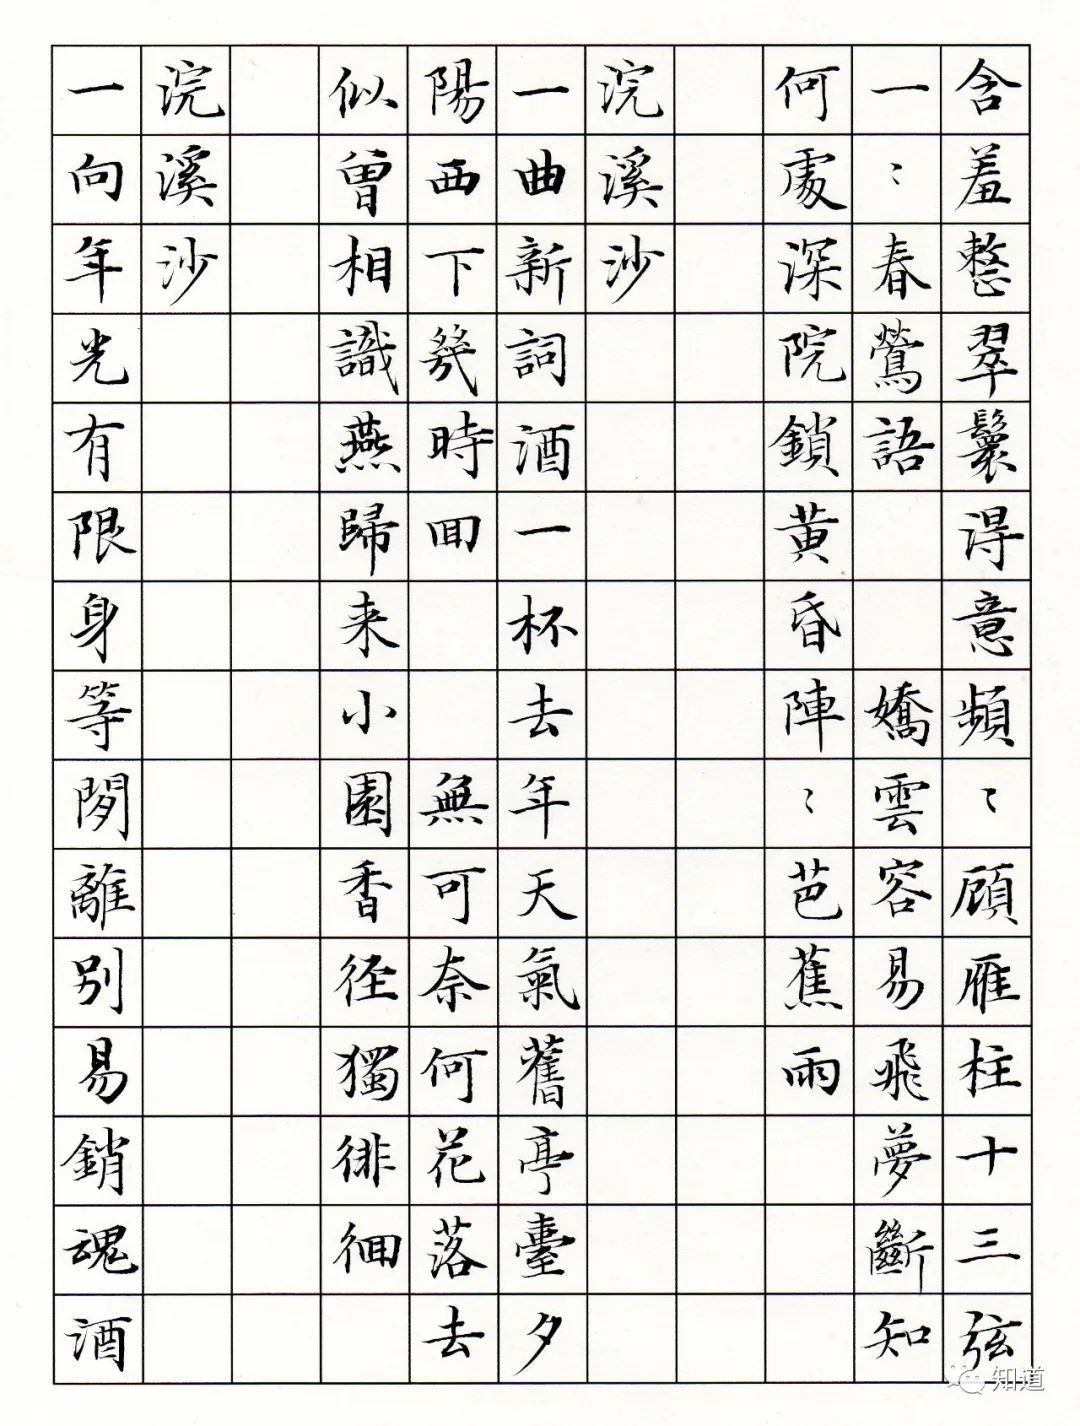 含羞整翠鬟得意頻〻顧雁柱十三弦
一〻春鶯語 嬌雲容易飛夢斷知
何處深院鎖黃昏陣〻芭蕉雨
浣溪沙
一曲新詞酒一杯去年天氣舊亭臺夕
陽西下幾時回 無可奈何花落去
似曾相識燕歸来小園香徑獨徘徊
浣溪沙
一向年光有限身等閒離別易銷魂酒
知道